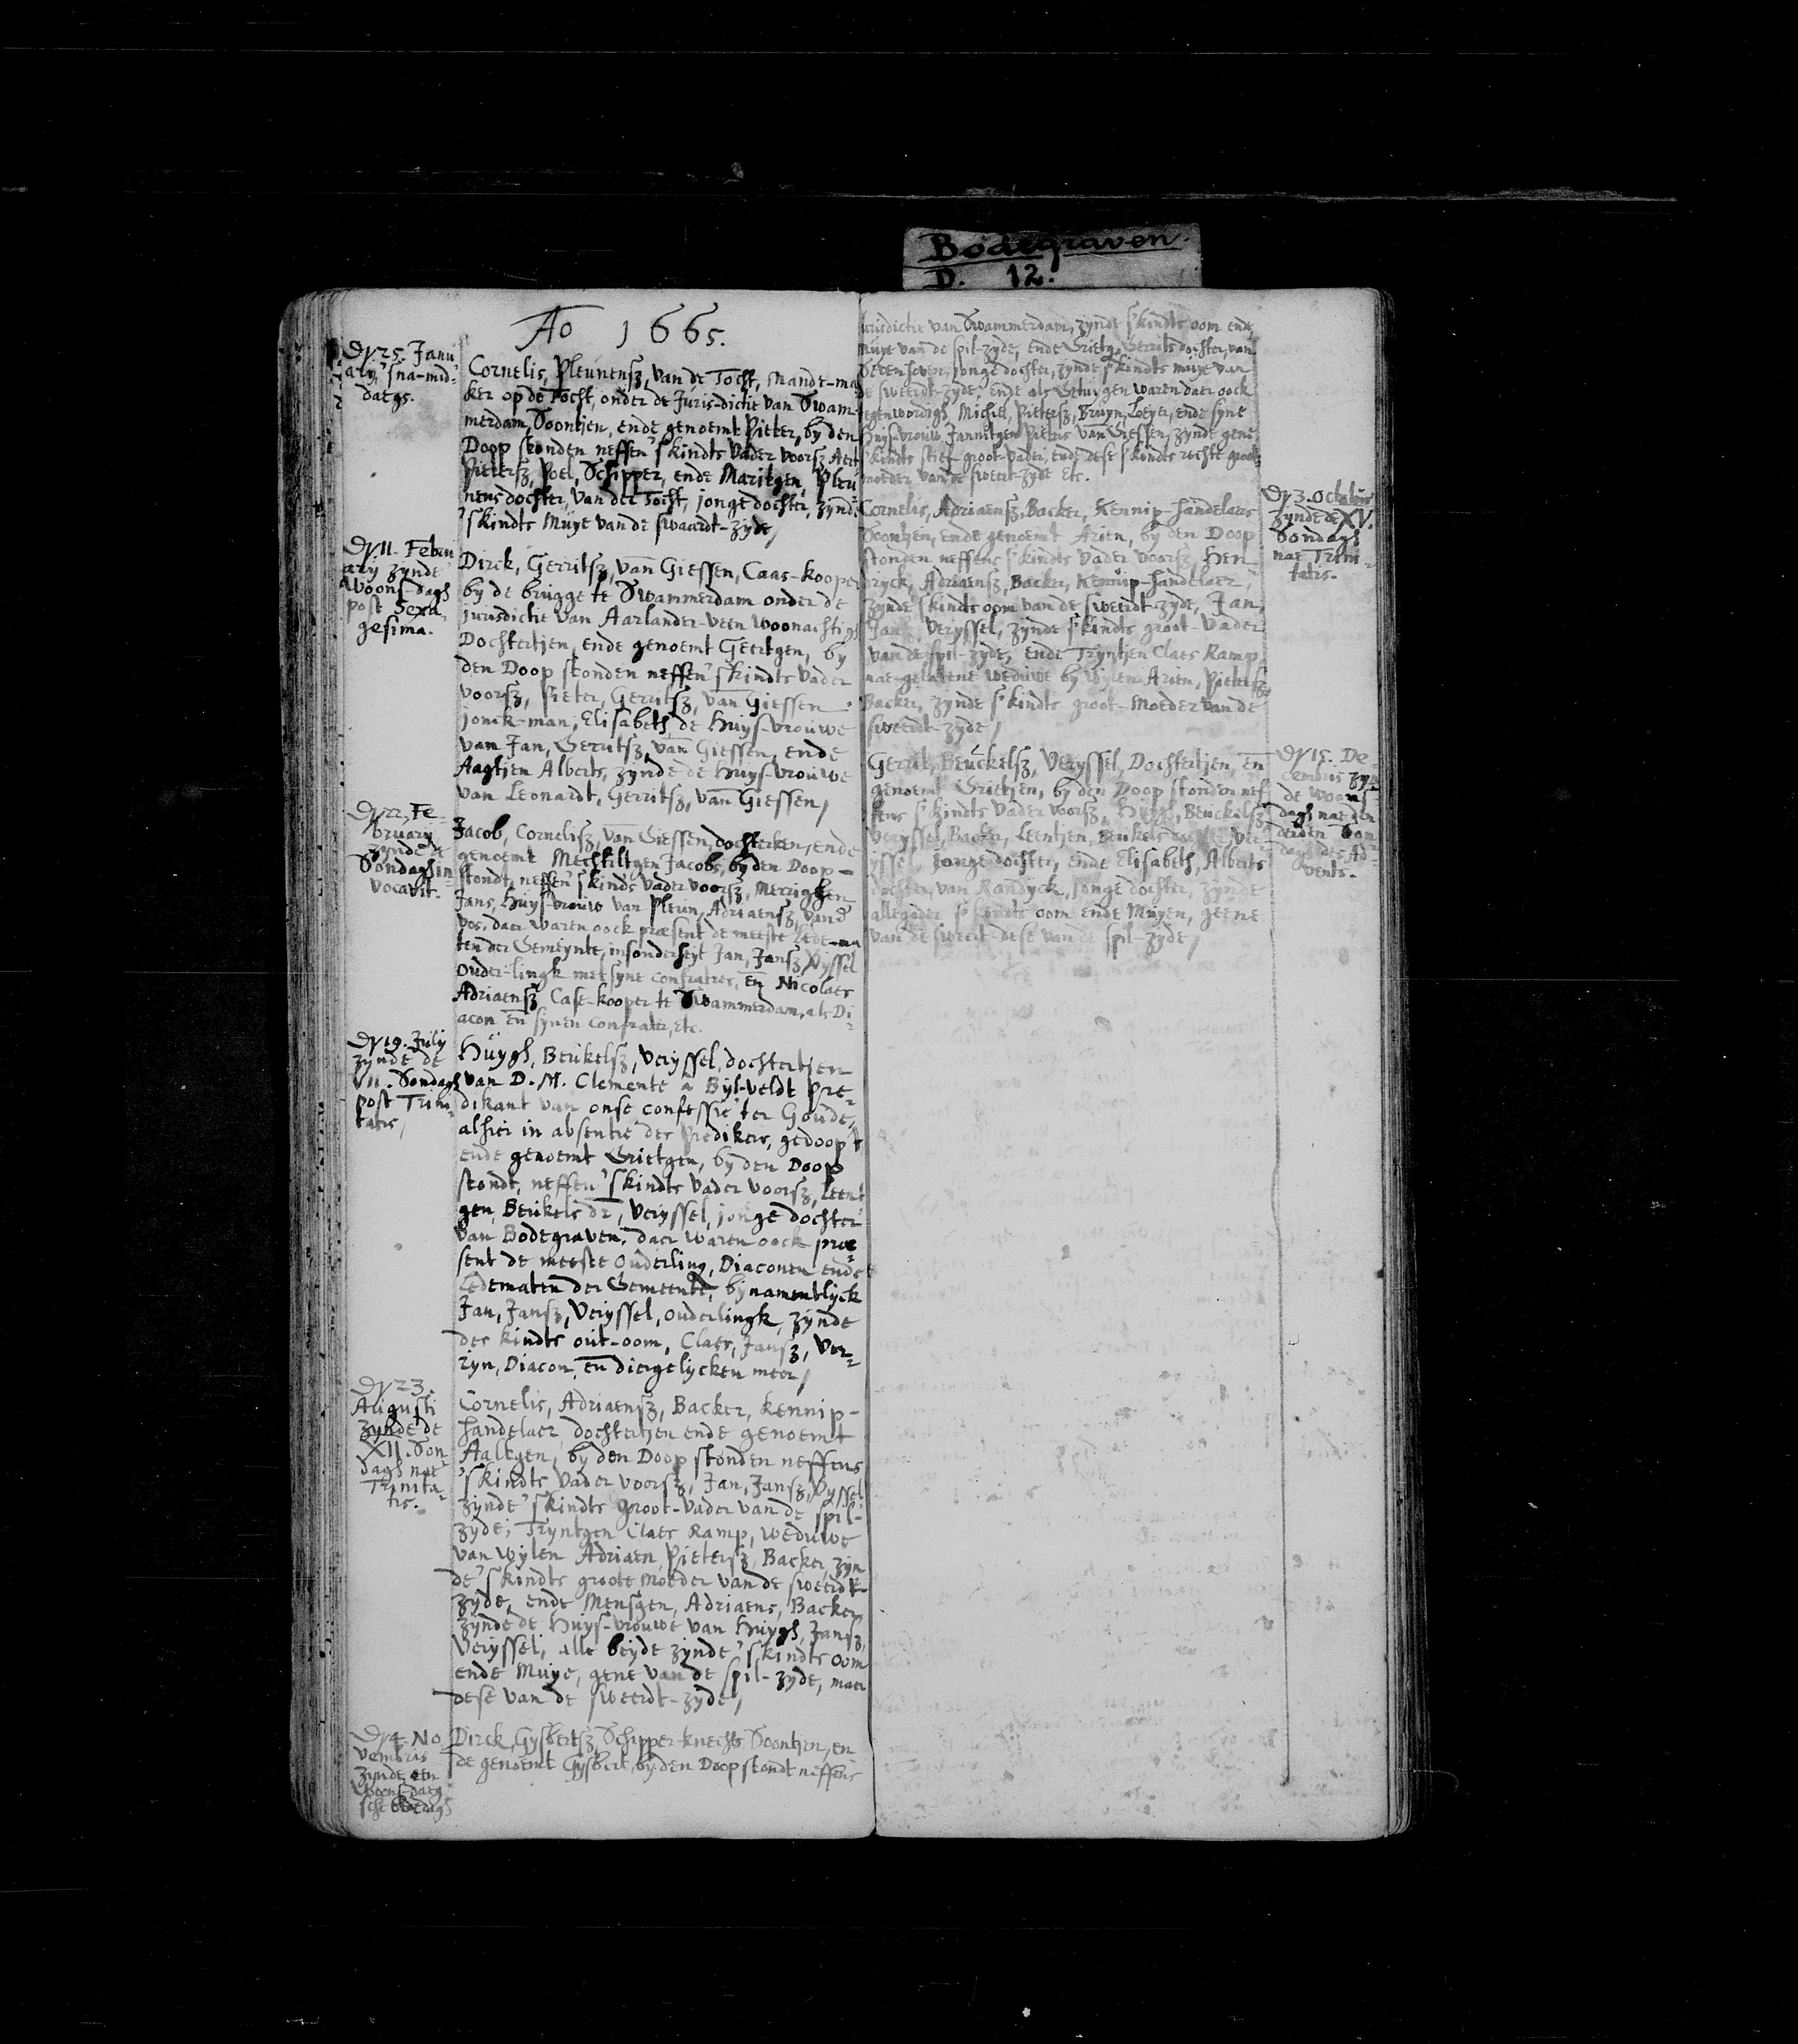 Bodegraven.
D. 12.
Ao 1665.
Dy 25. Janu
ary, 'sna-mid-
daegs.
Cornelis, Pleunensz, van de Tocht, Mande-ma
ker op de Tocht, onder de Juris-dictie van Swam-
merdam, Soontjen, ende genoemt Pieter, by den
Doop stonden neffen 'skindts Vader voorsz Aert
Pietersz, Poel, Schipper, ende Maritgen, Pleu
nens dochter, van der Tocht, jonge dochter, zynde
'skindts Muye van de swaerdt-zyde,
Dy 11. Febru
ary zynde
Woons-dagh
post Sexa-
gesima.
Dirck, Gerritsz, van Giessen, Caas-kooper
by de brugge te Swammerdam onder de
jurisdictie van Aarlander-veen woonachtigh
Dochtertjen, ende genoemt Geertgen, by
den Doop stonden neffen 'skindts Vader
voorsz, Pieter, Gerritsz, van Giessen
jonck-man, Elisabeth, de Huys-vrouwe
van Jan, Gerritsz, van Giessen, ende
Aagtjen Alberts, zynde de Huys-vrouwe
van Leonardt, Gerritsz, van Giessen,
Dy 22. Fe-
bruary
zynde de
Sondagh in-
vocavit.
Jacob, Cornelisz, van Giessen, dochterken, ende
genoemt Mechtiltgen Jacobs, by den Doop-
stondt, neffen 'skinds Vader voorsz, Merrighen
Jans, Huysvrouw van Pleun, Adriaensz, vand
Vos, daer waren oock præsent de meeste Lede-ma
ten der Gemeynte, insonderheyt Jan, Jansz, Vyssel
Ouder-lingk met syne confraters, en Nicolaes
Adriaensz Case-kooper te Swammerdam, als Di-
acon en synen Confrater, etc.
Dy 19. July
zynde de
VII. Sondagh
post Trini-
tatis,
Huygh, Beukelsz, Veryssel, dochtertjen
van D. M. Clemente a Byl-veldt Pre-
dikant van onse confessie ter Goude,
alhier in absentie des Predikers, gedoopt
ende genoemt Grietgen, by den Doop
stondt, neffen 'skindts Vader voorsz, Leent
gen, Beukels dr, Veryssel, jonge dochter
van Bodegraven. daer waren oock præ-
sent de meeste Ouderling, Diaconen ende
Ledematen der Gemeente, by namentlyck
Jan, Jansz, Veryssel, ouderlingk, zynde
des kindts out-oom, Claes, Jansz, Ver-
ryn, Diacon, en diergelycken meer,
Dy 23.
Augusti
zynde de
XII. Son
dagh nae
Trinita-
tis.
Cornelis, Adriaensz, Backer, Kennip-
handelaer, dochtertjen ende genoemt
Aaltgen, by den Doop stonden neffens
'skindts Vader voorsz, Jan, Jansz, Vyssel
zynde 'skindts groot-Vader van de spil-
zyde; Tryntgen Claes Ramp, Weduwe
van Wylen Adriaen, Pietersz, Backer, zyn
de 'skindts groote Moeder van de sweerdt-
zyde, ende Mensgen, Adriaens, Backer
zynde de Huys-vrouwe van Huygh, Jansz,
Veryssel, alle beyde zynde 'skindts oom
ende Muye, gene van de spil-zyde, maer
dese van de sweerdt-zyde,
Dy 4. No
vembris
zynde een
Woens-daeg
sche Bededagh
Dirck, Gysbertsz, Schipper-knechts Soontjen, en
de genoemt Gysbert, by den Doop stondt neffens
jurisdictie van Swammerdam, zynde s'kindts oom ende
Muye van de spil-zyde, ende Grietge, Gerrits dochter, van
Sevenhoven, jonge dochter, zynde s'kindts muye van
de sweerdt-zyde. ende als Getuygen waren daer oock
tegenwordigh, Michiel, Pietersz, Bruyn, Loeyer, ende syne
Huysvrouw Jannitgen Pieters van Giessen, zynde gene
s'kindts stief groot-vader, ende dese s'kindts rechte groot
moeder van de sweert-zyde etc.
Dy 3. Octobris
zynde de XV.
Sondagh
nae Trini-
tatis.
Cornelis, Adriaensz, Backer, Kennip-handelaers
Soontjen, ende genoemt Arien, by den Doop
stonden neffens s'kindts Vader voorsz, Hen
dryck, Adriaensz, Backer, Kennip-handelaer,
zynde s'kindts oom van de sweerdt-zyde, Jan,
Jansz, Veryssel, zynde s'kindts groot-Vader
van de spil-zyde, ende Tryntjen Claes Ramp,
nae-gelatene Weduwe by Wylen Arien, Pietersz,
Backer, zynde s'kindts groot-Moeder van de
sweerdt-zyde,
Dy 15. De-
cembris zyn
de Woens-
dagh nae den
derden Son
dagh des Ad-
vents.
Gerrit, Beuckelsz, Veryssel, Dochtertjen, en
genoemt Grietjen, by den Doop stonden nef
fens s'kindts Vader voorsz, Huygh, Beuckelsz
Veryssel, Backer, Leentjen, Beukels dochter, Ver-
yssel, jonge dochter, ende Elisabeth, Alberts
dochter, van Randyck, jonge dochter, zynde
allegader s'kindts oom ende Muyen, geene
van de sweert- dese van de spil-zyde,